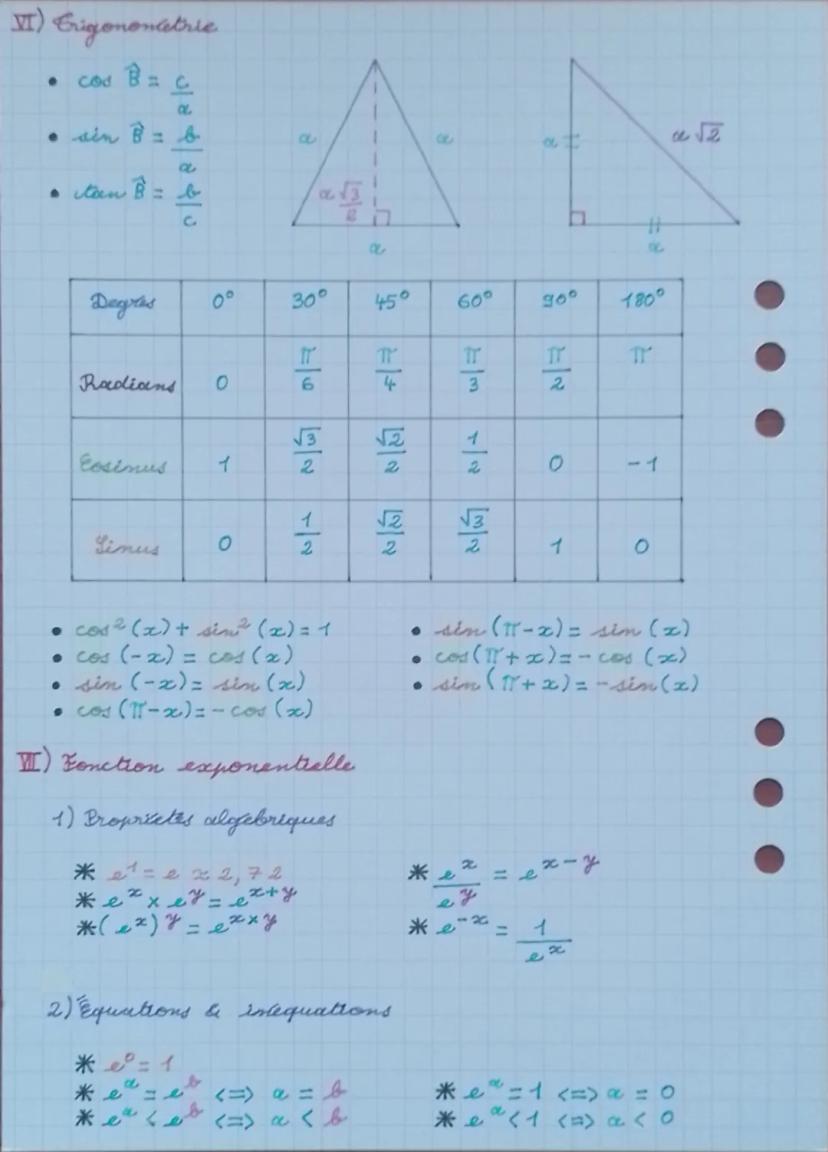 VI) Trigonométrie
• cos B̂ = c/a
• sin B̂ = b/a
• tan B̂ = b/c
a
a
a√3/2
a
a
a√2
a
Degrés 0° 30° 45° 60° 90° 180°
Radians 0 π/6 π/4 π/3 π/2 π
Cosinus 1 √3/2 √2/2 1/2 0 -1
Sinus 0 1/2 √2/2 √3/2 1 0
• cos²(x) + sin²(x) = 1
• cos (-x) = cos (x)
• sin (-x) = sin (x)
• cos (π-x) = -cos (x)
• sin (π-x) = sin (x)
• cos(π+x) = -cos (x)
• sin (π+x) = -sin(x)
VII) Fonction exponentielle
1) Propriétés algébriques
* e¹ = e ≈ 2,72
* eˣ × eʸ = eˣ⁺ʸ
* (eˣ)ʸ = eˣ ˣ ʸ
* eˣ/eʸ = eˣ⁻ʸ
* e⁻ˣ = 1/eˣ
2) Équations & inéquations
* e⁰ = 1
* eᵃ = eᵇ <=> a = b
* eᵃ < eᵇ <=> a < b
* eᵃ = 1 <=> a = 0
* eᵃ < 1 <=> a < 0